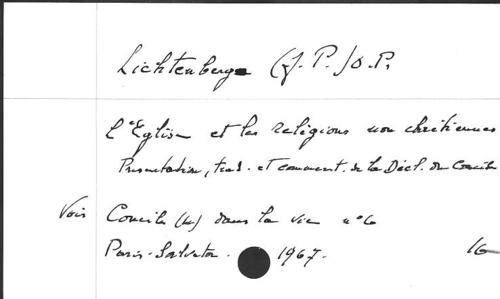 Lichtenberg (J. P.) O. P.
L'Eglise et les religions non chrétiennes
Présentation, trad. et comment. de la Décl. du Concile
Voir Concile (Le) dans la vie n° 6
Paris-Salvator. 1967. 16